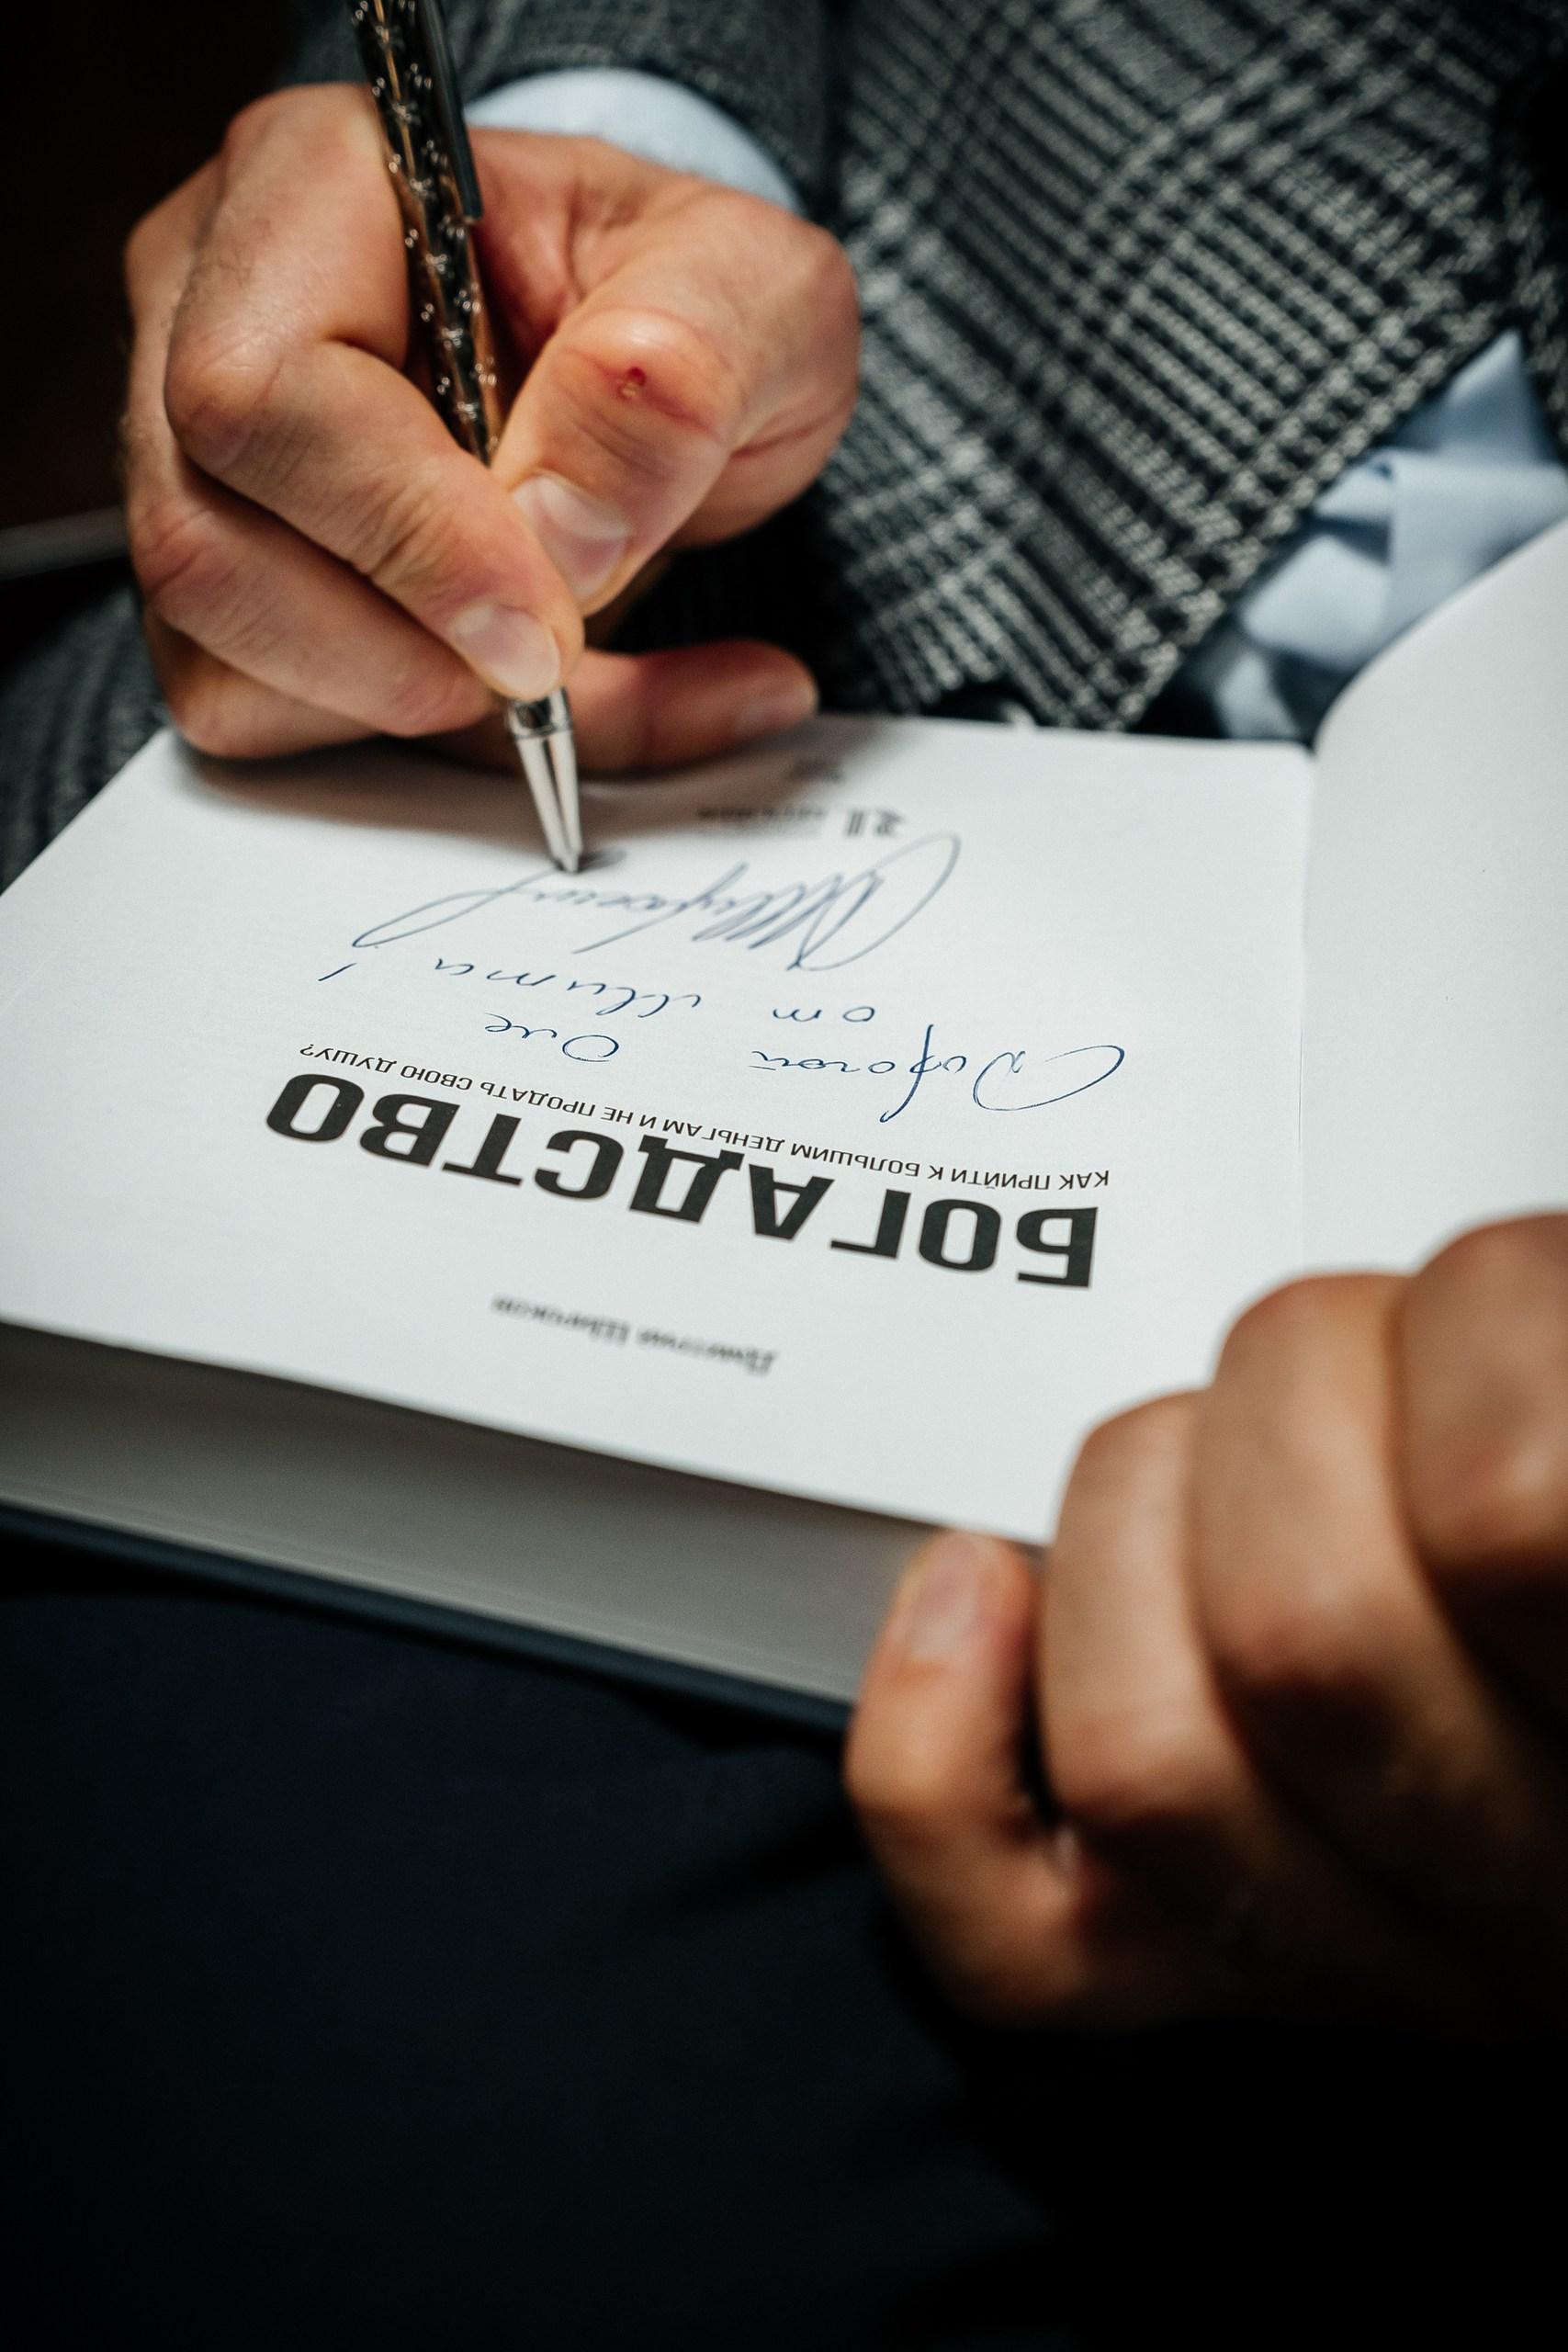 Дмитрий Широков
БОГАДСТВО
КАК ПРИЙТИ К БОЛЬШИМ ДЕНЬГАМ И НЕ ПРОДАТЬ СВОЮ ДУШУ?
Дорогой Оле
от Мита!